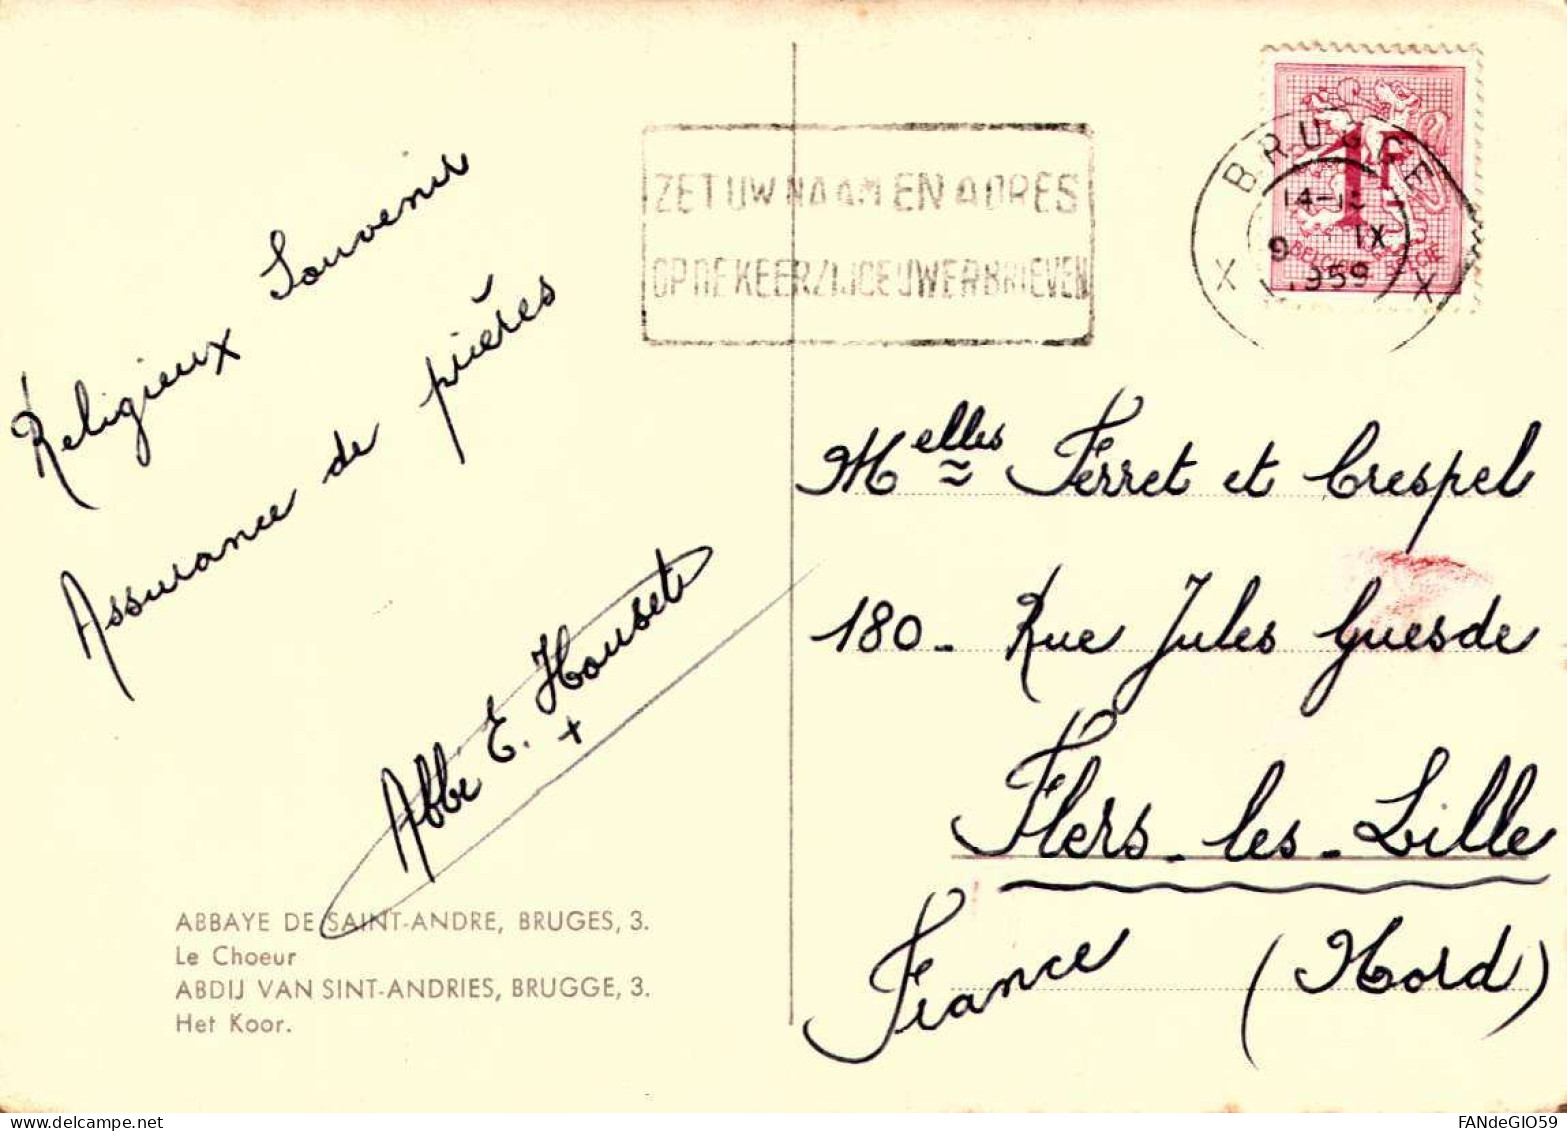 Religieux Souvenir
Assurance de prières
Abbé E. Houset
ABBAYE DE SAINT-ANDRE, BRUGES, 3.
Le Choeur
ABDIJ VAN SINT-ANDRIES, BRUGGE, 3.
Het Koor.
ZET UW NAAM EN ADRES
OP DE KEERZIJDE UWER BRIEVEN
BRUGGE
14-15
9 IX
1959
X X
1F
BELGIQUE BELGIË
Melles Ferret et Crespel
180 - Rue Jules Guesde
Flers-les-Lille
France (Nord)
FANdeGIO59